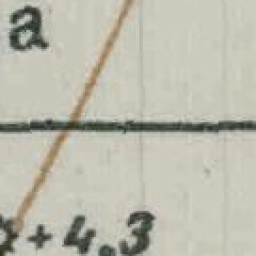 a
+ 4.3